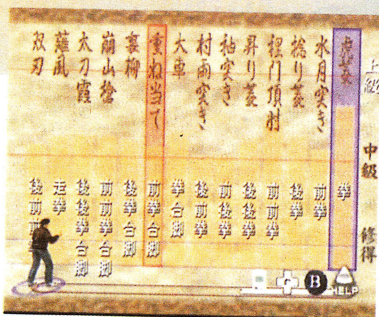 上級
中級
修得
拳
水月突き 前拳
捻り菱 後拳
裡門頂肘 前前拳
昇り菱 後後拳
袖突き 前後拳
村雨突き 後前拳
大車 拳合脚
重ね当て 前拳合脚
裏柳 後拳合脚
崩山槍 前前拳合脚
太刀霞 後後拳合脚
薙風 走拳
双刃 後前前
B
HELP